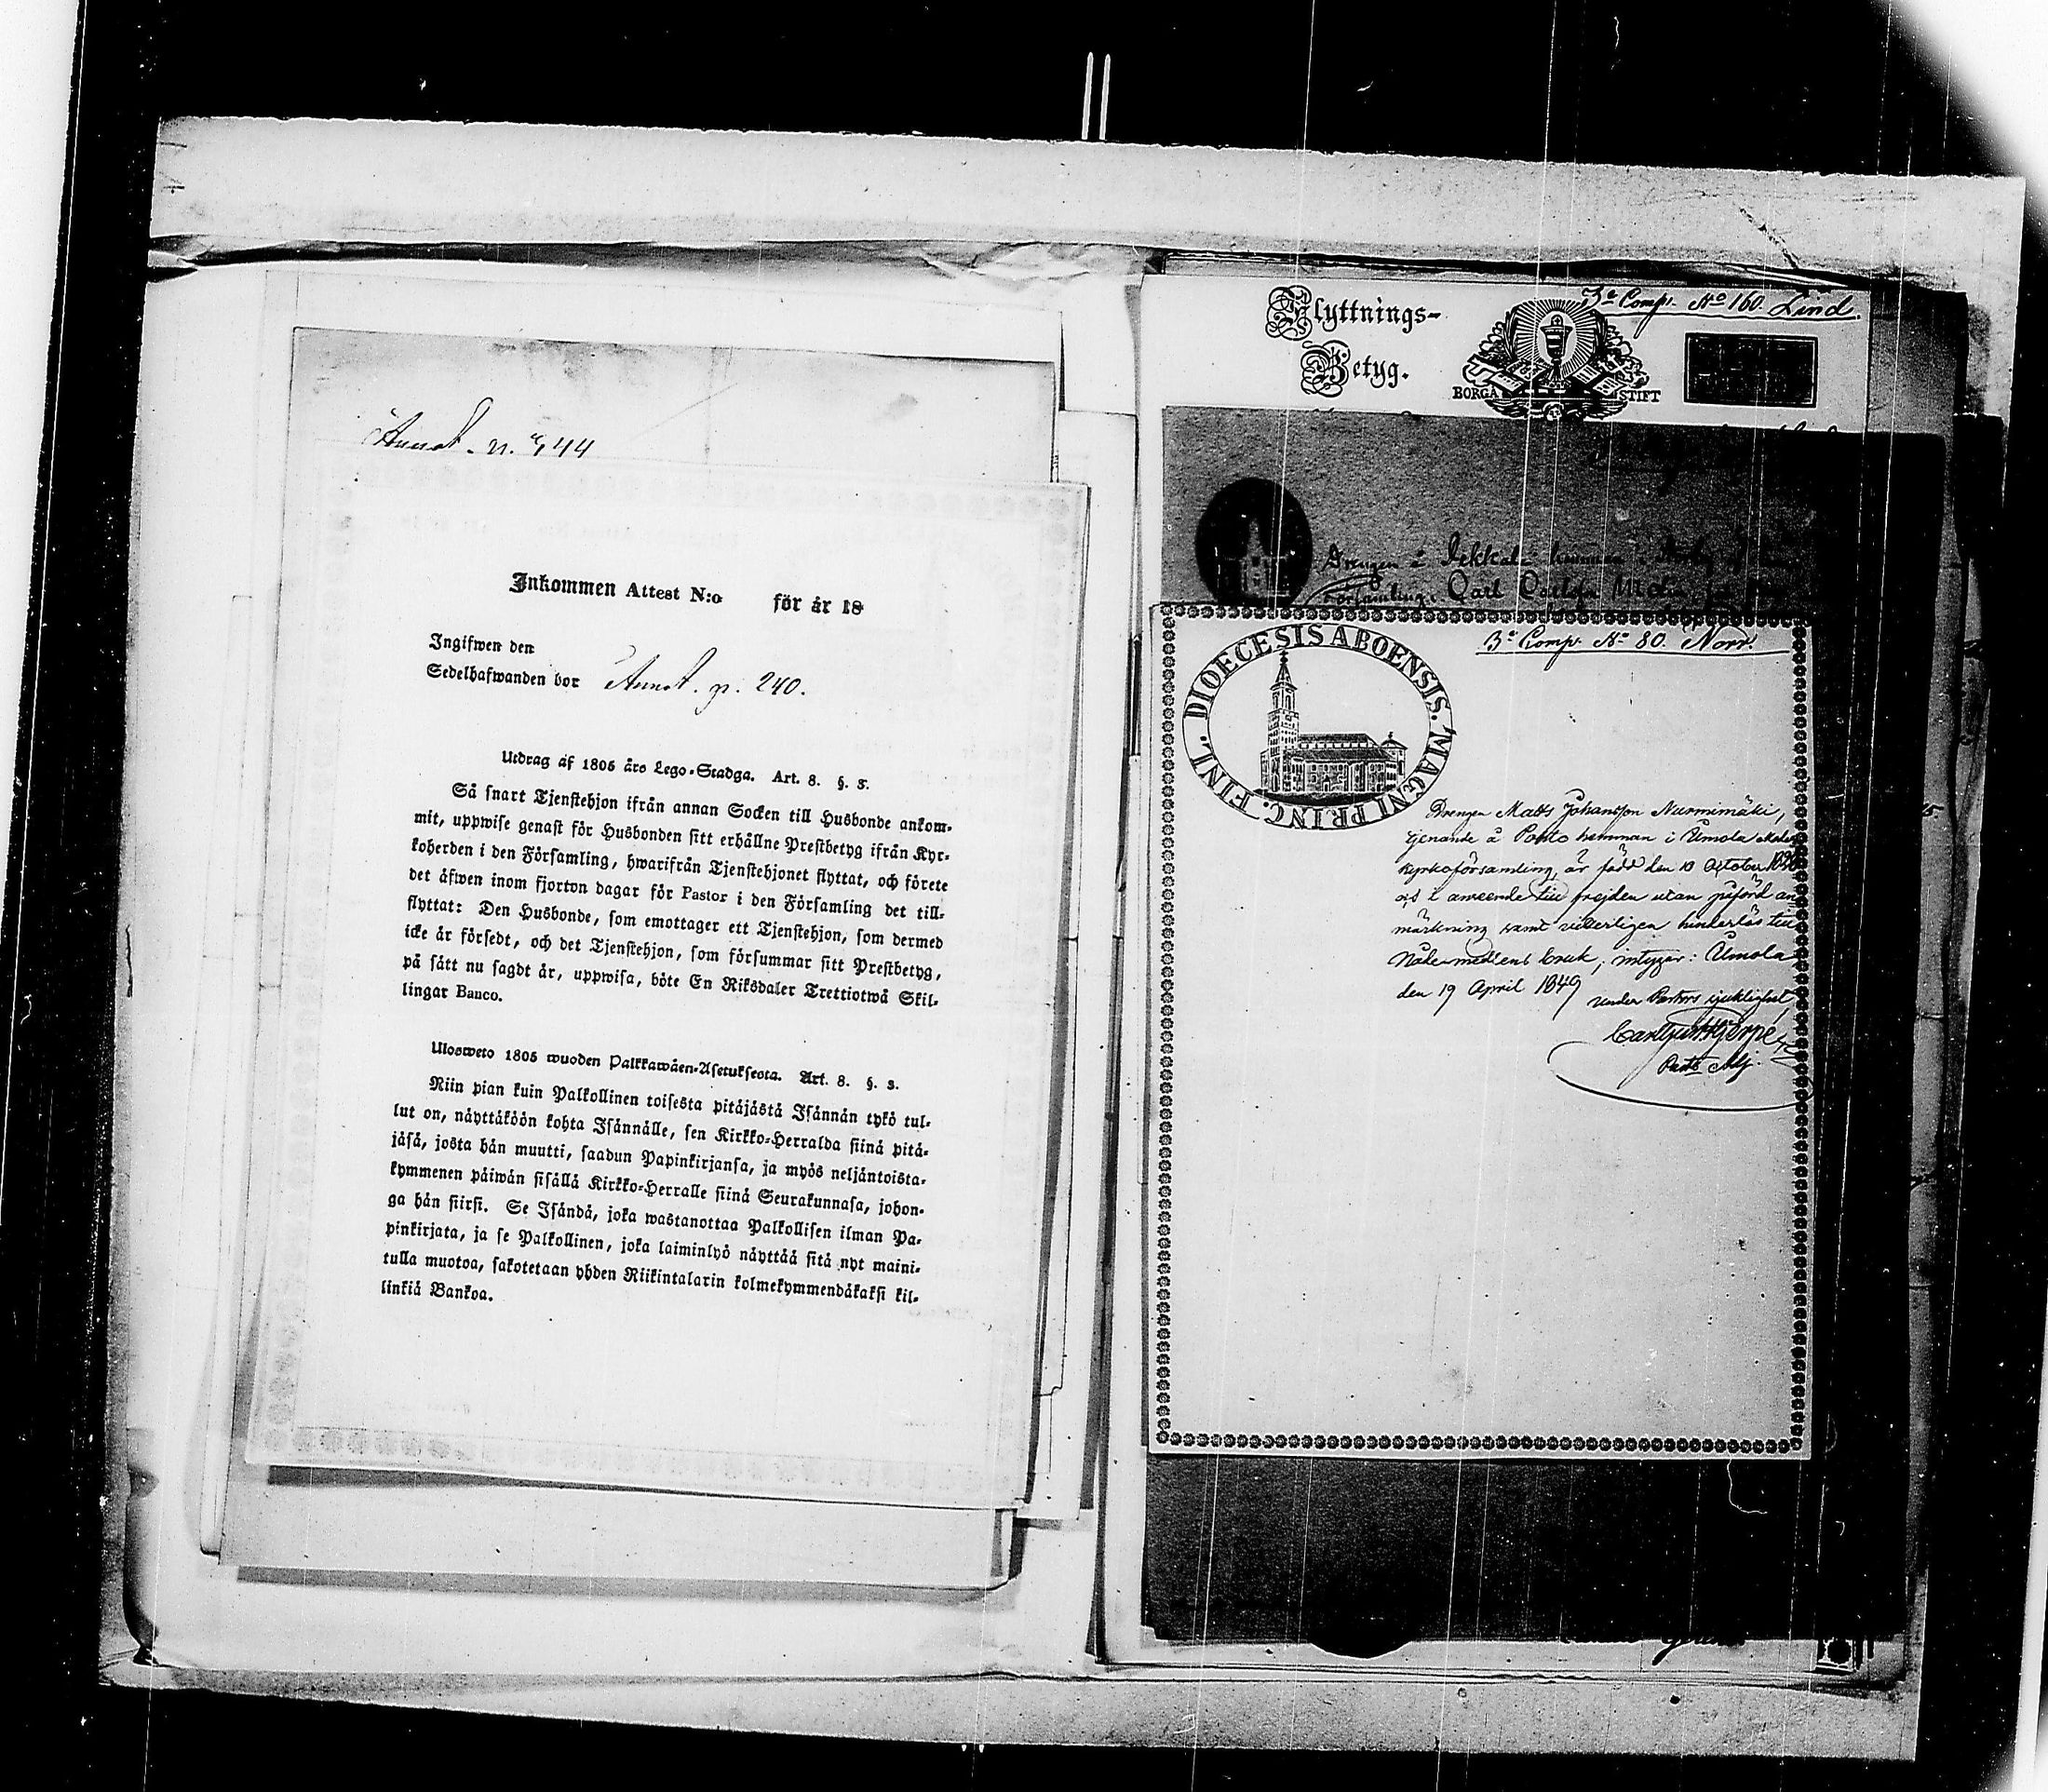 Annot. n. 944
Inkommen Attest N:o för år 18
Ingifwen den
Sedelhafwanden bor Annot. p. 240.
Utdrag af 1805 års Lego-Stadga. Art. 8. §. 3.
Så snart Tjenstehjon ifrån annan Socken till Husbonde ankom-
mit, uppwise genast för Husbonden sitt erhållne Prestbetyg ifrån Kyr-
koherden i den Församling, hwarifrån Tjenstehjonet flyttat, och förete
det åfwen inom fjorton dagar för Pastor i den Församling det till-
flyttat: Den Husbonde, som emottager ett Tjenstehjon, som dermed
icke år försedt, och det Tjenstehjon, som försummar sitt Prestbetyg,
på sått nu sagdt år, uppwisa, böte En Riksdaler Trettiotwå Skil-
lingar Banco.
Ulosweto 1805 wuoden Palkkawåen-Asetuksesta. Art. 8. §. 3.
Niin pian kuin Palkollinen toisesta pitåjåstå Isånnån tykö tul-
lut on, nåyttåköön kohta Isånnålle, sen Kirkko-Herralda siinå pitå-
jåså, josta hån muutti, saadun Papinkirjansa, ja myös neljåntoista-
kymmenen påiwån sisållå Kirkko-Herralle siinå Seurakunnasa, johon-
ga hån siirsi. Se Isåndå, joka wastanottaa Palkollisen ilman Pa-
pinkirjata, ja se Palkollinen, joka laiminlyö nåyttåå sitå nyt maini-
tulla muotoa, sakotetaan yhden Riikintalarin kolmekymmendåkaksi kil-
linkiå Bankoa.
3e Comp. No 160. Lind
Flyttnings-
Betyg.
BORGÅ STIFT
Drengen å hemman i
Församling, Carl Carlsson
3e Comp. No 80. Norr.
DIOECESIS ABOENSIS. MAGNI PRINC. FINL.
Drengen Matts Johansson Nurmimäki,
tjenande å Ponto hemman i Ulmola
kyrkoförsamling, är född den 10 October
och i anseende till frejden utan påförd an
märkning samt hinderlös till
Nattvardens bruk, intygar: Ulmola
den 19 April 1849
under Pastors sjuklighet
Past. Adj.